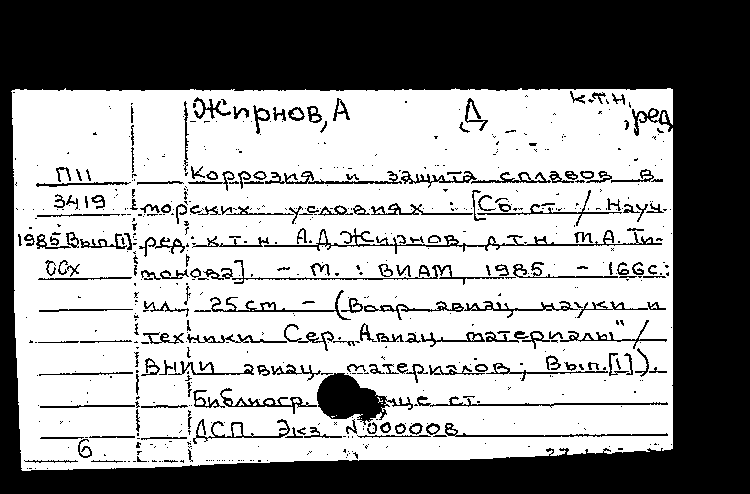 Жирнов, А Д к.т.н., ред
П11 Коррозия и защита сплавов в
3419 морских условиях : [Сб. ст. / Науч.
1985 Вып.[1] ред.: к.т.н. А.Д. Жирнов, д.т.н. М.А. Ти-
00х монова]. - М. : ВИАМ, 1985. - 166 с.:
ил. 25 ст. - (Вопр авиац. науки и
техники. Сер. „Авиац. материалы" /
ВНИИ авиац. материалов; Вып.[1]).
Библиогр. нце ст.
ДСП. Экз. №000008.
6